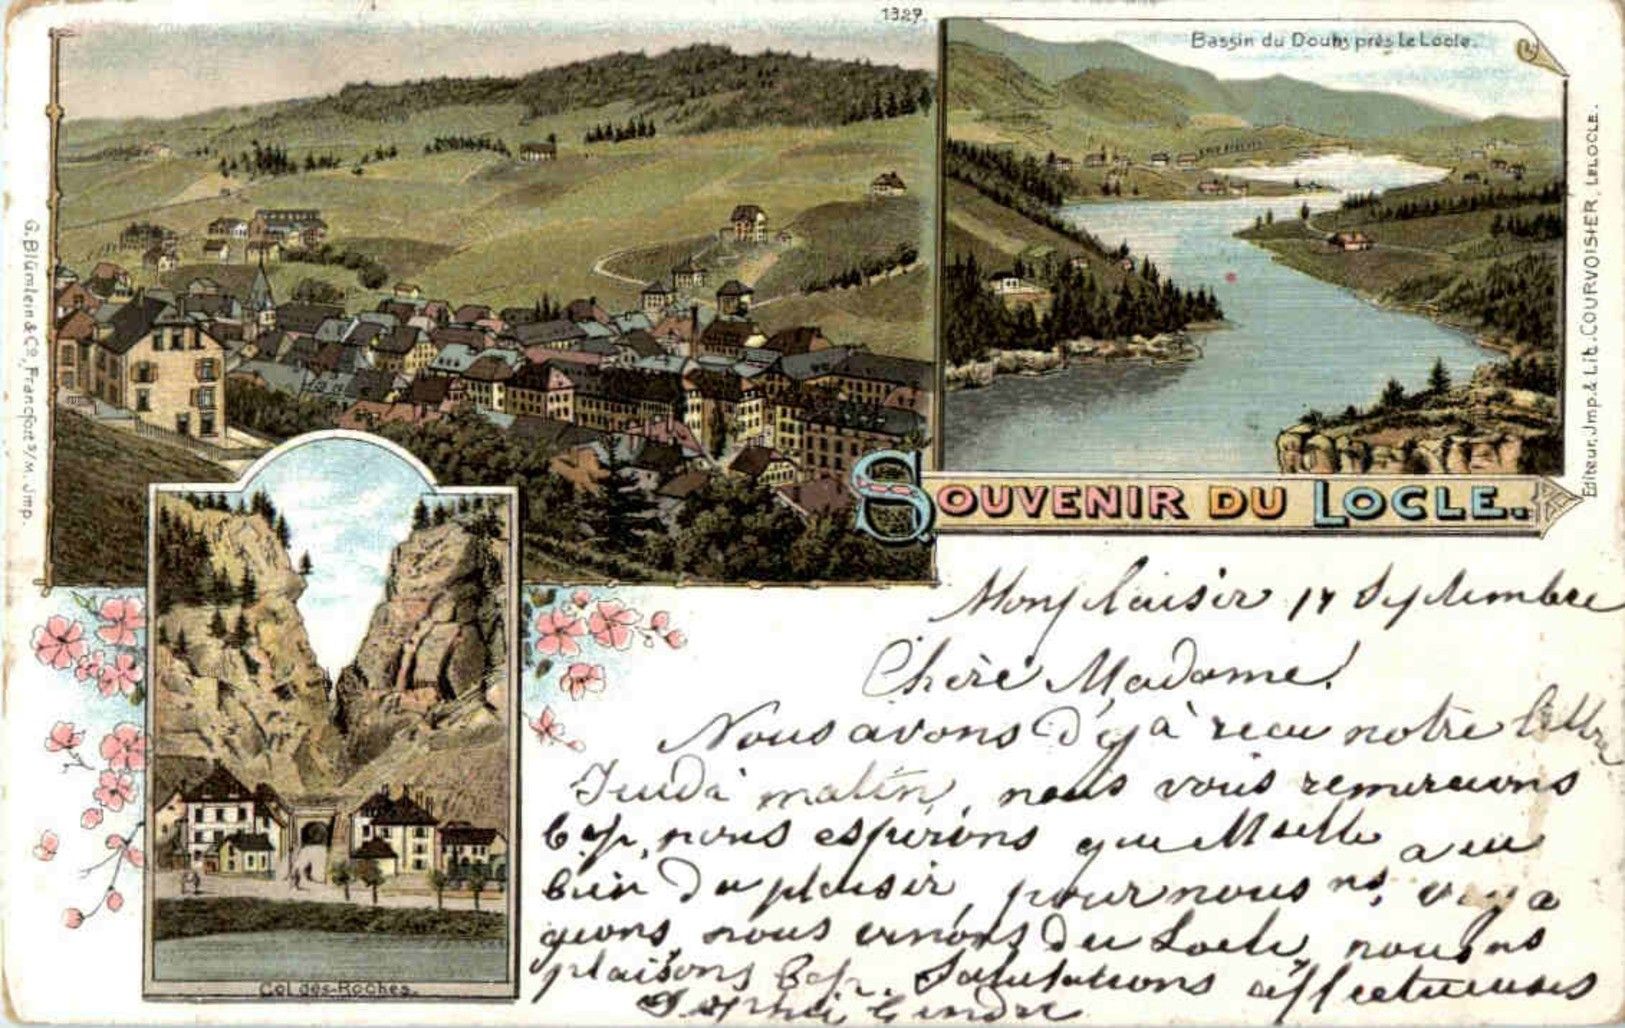 1327.
Bassin du Doubs près Le Locle.
G. Blümlein & Co, Francfort s/M. Jmp.
Editeur, Jmp. & Lit. COURVOISIER, LELOCLE.
SOUVENIR DU LOCLE.
Col des-Roches.
17 Septembre
Chère Madame!
Nous avons déyà recu notre lettre
Jeudi matin, nous vous remercions
bcp, nous espérons que Mselle a eu
bien du plaisir, pour nous ns, voya
geons, nous du Locle, nous ns
plaisons bcp. Salutations affectueuses